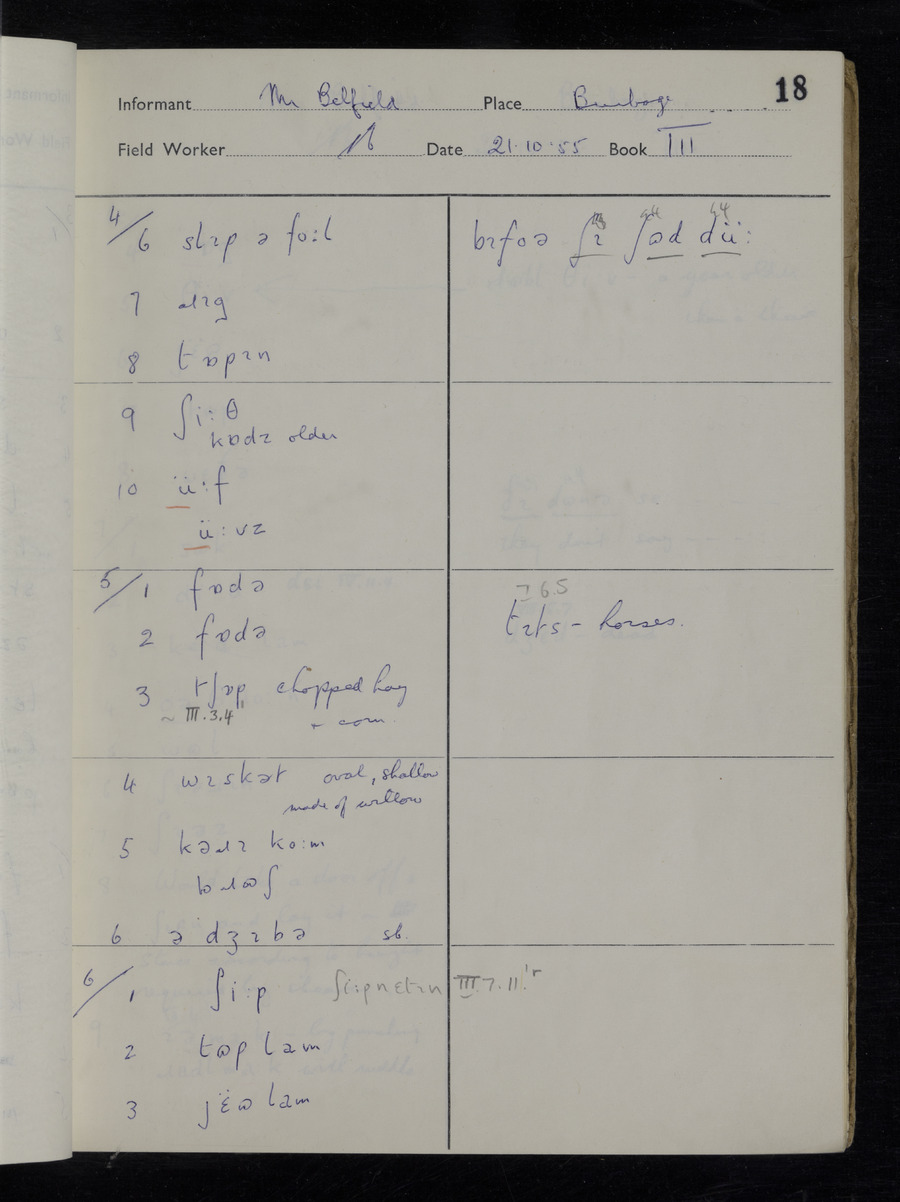 18
Informant Mr Belfield Place Burbage
Field Worker Date 21.10.55 Book III
4/6 slɪp ə fo:l bɪfoə ʃɪ ʃəd dü:
7 ɹɪg
8 tɒpɪn
9 ʃi:θ
kɒdɪ older
10 ü:f
ü:vz
5/1 fɒdə
2 fɒdə tɪts - horses.
3 tʃɒp chopped hay
~ III.3.4 + corn.
4 wɪskət oval, shallow
made of willow
5 kəɹɪ ko:m
bɹɷʃ
6 ə dʒɪbə sb.
6/1 ʃi:p ʃi:pnɛtɪn III.7.11
2 tɷp lam
3 jɛ̈ɷ lam